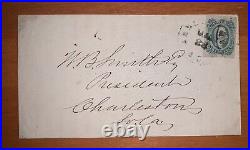 W. B. Smith
President
Charleston
So. Ca.